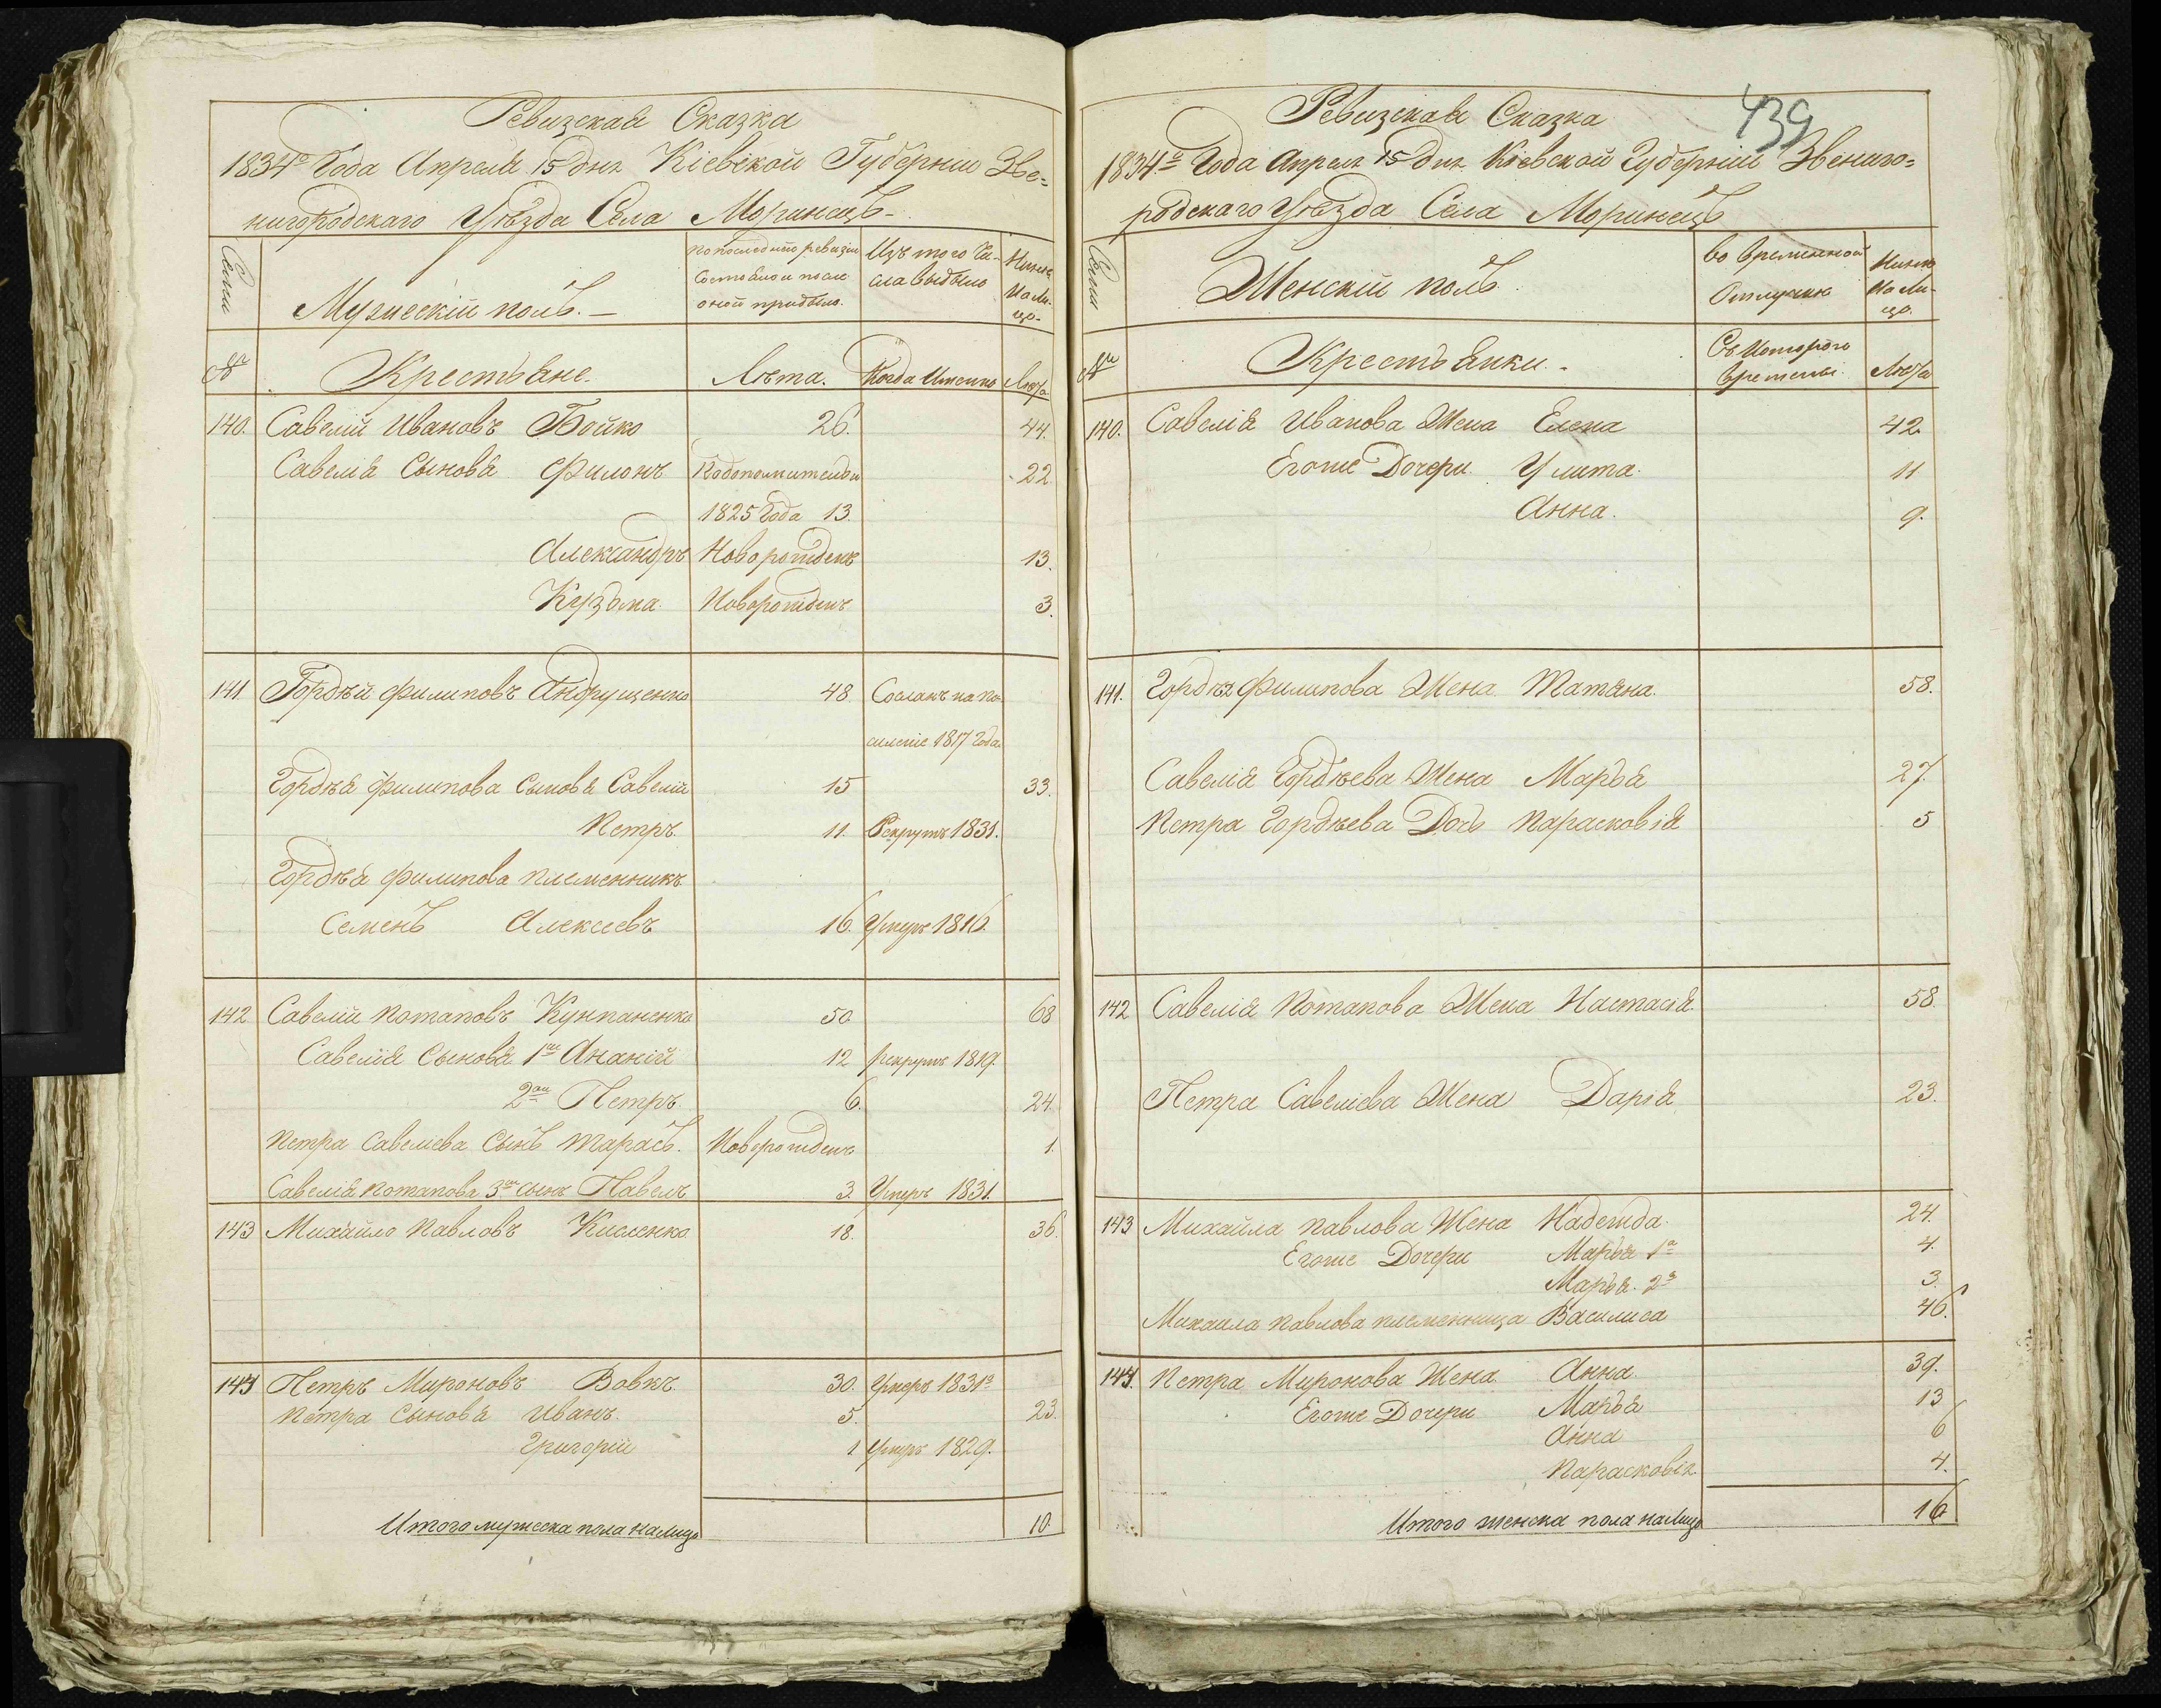 Ревизская Сказка
1834го Года Апреля 15 Дня Кіевской Губерніи Зве=
нигородскаго Уѣзда Села Моринецъ
Семьи
Мужескій полъ.
по последней ревизіи
состояло и после
оной прибыло.
Изъ того Чи-
сла выбыло
Ныне
На Ли-
цо.
№
Крестьяне.
Лѣта.
Когда Именно
Лѣта
140. Савелій Ивановъ Бойко 26. 44.
Савелія Сыновья Филонъ 22
1825 Года 13.
Александръ Новорожденъ 13.
Кузьма Новорожденъ 3.
141 Гордѣй Филиповъ Андрущенко 48 Сосланъ на по-
селеніе 1817 Года
Гордѣя Филипова Сыновья Савелій 15 33.
Петръ. 11. Рекрутъ 1831.
Гордѣя Филипова племенникъ
Семенъ Алексеевъ 16. Умеръ 1816.
142 Савелій Потаповъ Кунпаненко 50 68
Савелія Сыновья 1й Ананій 12 рекрутъ 1819.
2ой Петръ. 6. 24.
Петра Савелиева Сынъ Тарасъ. Новорожденъ 1.
Савелія Потапова 3й сынъ Павелъ 3. Умеръ 1831.
143 Михайло Павловъ Кисленко 18. 36.
144 Петръ Мироновъ Вовкъ 30. Умеръ 1831го
Петра Сыновья Иванъ. 5. 23.
Григорій 1 Умеръ 1829.
Итого мужеска пола налицо 10.
439
Ревизская Сказка
1834го Года Апреля 15 Дня Кіевской Губерніи Звениго=
родскаго Уѣзда Села Моринецъ
Семьи
Женскій полъ.
во временной
Отлучкѣ
Ныне
На Ли-
цо.
№
Крестьянки.
Съ Которого
времени.
Лѣта
140. Савелія Иванова Жена Елена 42
Егоже Дочери Улита. 11
Анна. 9.
141. Гордѣя Филипова Жена Татьяна. 58.
Савелія Гордѣева Жена Марья 27.
Петра Гордѣева Дочь Парасковія 5
142 Савелія Потапова Жена Настасія. 58.
Петра Савеліева Жена Дарія 23.
143 Михайла Павлова Жена Надежда. 24.
Егоже Дочери Марья 1я 4.
Марья. 2я 3.
Михаила Павлова племенница Василиса 46.
144. Петра Миронова Жена Анна 39.
Егоже Дочери Марья 13
Анна 6
Парасковія. 4.
Итого женска пола налицо 16